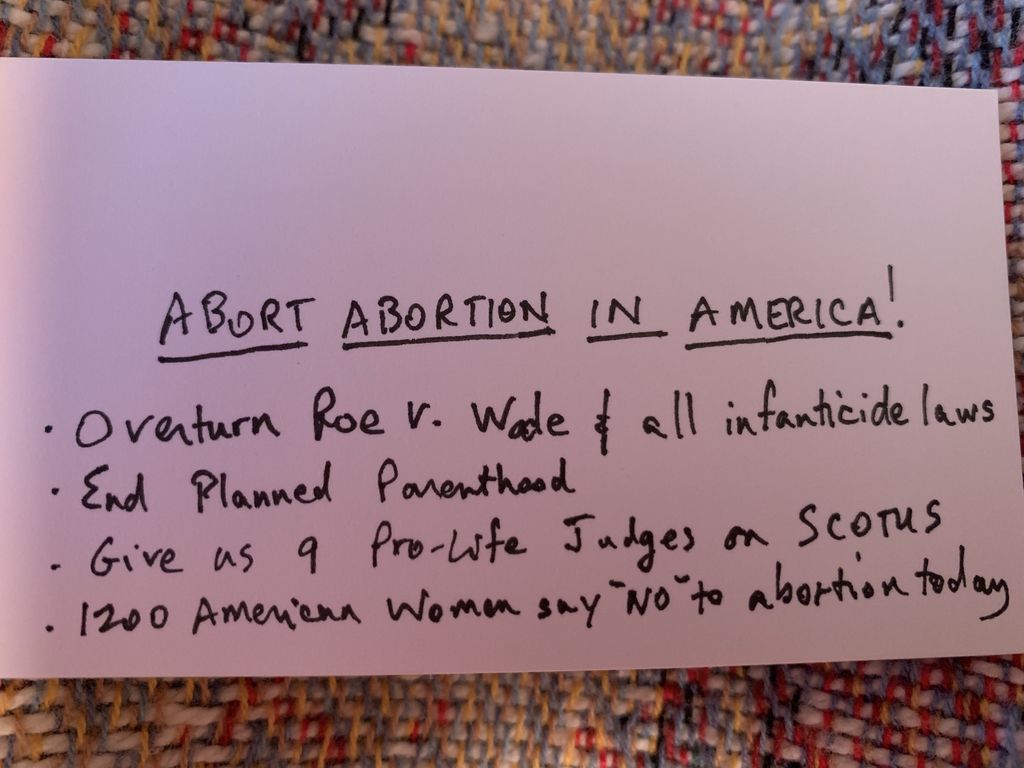 ABORT ABORTION IN AMERICA!
· Overturn Roe v. Wade & all infanticide laws
· End Planned Parenthood
· Give us 9 Pro-Life Judges on SCOTUS
· 1200 American Women say "NO" to abortion today